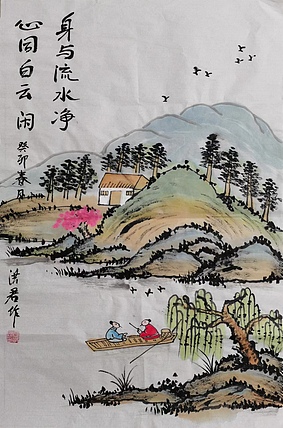 身与流水净
心同白云闲
癸卯春月
洪君作